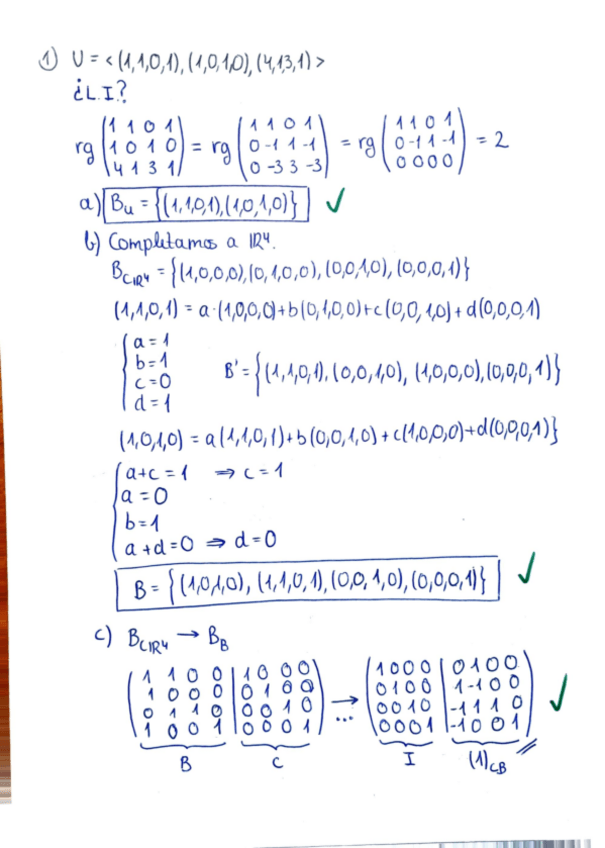 1) U = < (1,1,0,1), (1,0,1,0), (4,1,3,1) >
¿L.I?
rg (1 1 0 1 / 1 0 1 0 / 4 1 3 1) = rg (1 1 0 1 / 0 -1 1 -1 / 0 -3 3 -3) = rg (1 1 0 1 / 0 -1 1 -1 / 0 0 0 0) = 2
a) Bu = {(1,1,0,1), (1,0,1,0)} ✓
b) Completamos a IR4.
B_CIR4 = {(1,0,0,0), (0,1,0,0), (0,0,1,0), (0,0,0,1)}
(1,1,0,1) = a·(1,0,0,0)+b(0,1,0,0)+c(0,0,1,0)+d(0,0,0,1)
a = 1
b = 1
c = 0
d = 1
B' = {(1,1,0,1), (0,0,1,0), (1,0,0,0), (0,0,0,1)}
(1,0,1,0) = a(1,1,0,1)+b(0,0,1,0)+c(1,0,0,0)+d(0,0,0,1)}
a+c = 1 ⇒ c = 1
a = 0
b = 1
a+d = 0 ⇒ d = 0
B = {(1,0,1,0), (1,1,0,1), (0,0,1,0), (0,0,0,1)} ✓
c) B_CIR4 → B_B
(1 1 0 0 | 1 0 0 0 / 1 0 0 0 | 0 1 0 0 / 0 1 1 0 | 0 0 1 0 / 1 0 0 1 | 0 0 0 1) → ... (1 0 0 0 | 0 1 0 0 / 0 1 0 0 | 1 -1 0 0 / 0 0 1 0 | -1 1 1 0 / 0 0 0 1 | -1 0 0 1) ✓
B C I (1)_CB